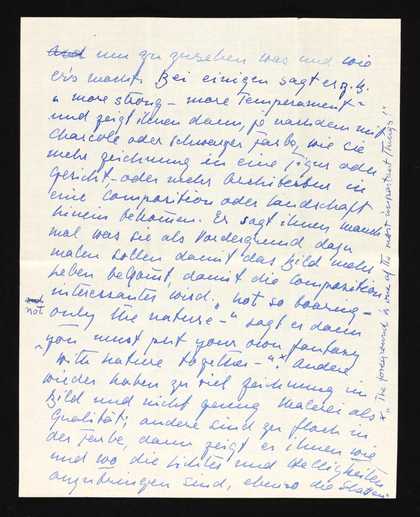 ~~and~~ um zu zusehen was und wie
er's macht. Bei einigen sagt er z.B.
"more strong – more temperament"
und zeigt ihnen dann, je nachdem mit
charcole oder schwarzer Farbe, wie sie
mehr Zeichnung in eine Figur oder
Gesicht, oder mehr Architektur in
eine Composition oder Landschaft
hinein bekommen. Er sagt ihnen manch
mal was sie als Vordergrund dazu
malen sollen damit das Bild mehr
Leben bekommt, damit die Composition
interessanter wird. "not so boaring –
not only the nature –" sagt er dann
"you must put your own fantasy
with nature together –". * Andere
wieder haben zu viel Zeichnung im
Bild und nicht genug Malerei als
Qualität; andere sind zu flach in
der Farbe, dann zeigt er ihnen wie
und wo die Lichter und Helligkeiten
anzubringen sind, ebenso die Schatten
* "The foreground is one of the most important Things!"